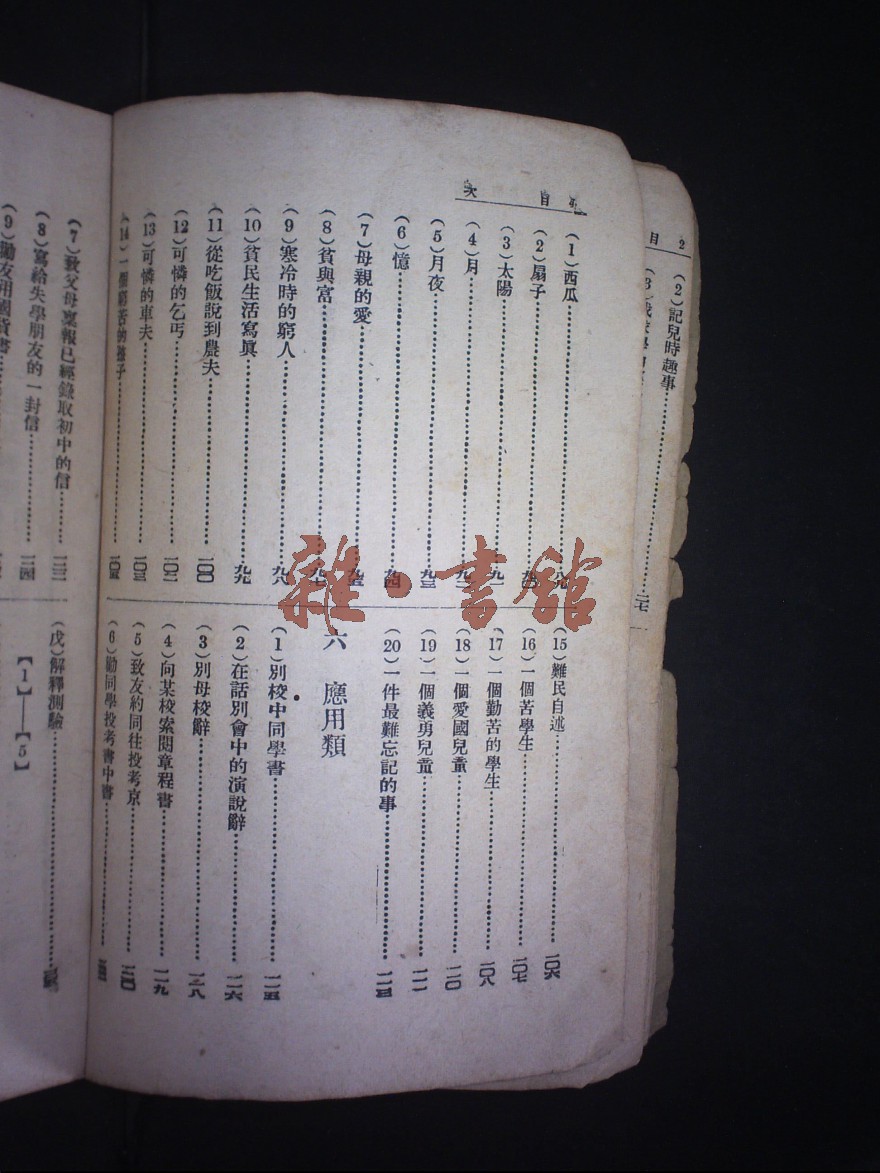 2 目
(2)記兒時趣事……二七
目 次
(1)西瓜
(2)扇子
(3)太陽……九一
(4)月
(5)月夜……九三
(6)憶……九四
(7)母親的愛……九五
(8)貧與富……九七
(9)寒冷時的窮人……九八
(10)貧民生活寫眞……九九
(11)從吃飯說到農夫……一〇〇
(12)可憐的乞丐……一〇二
(13)可憐的車夫……一〇三
(14)一個窮苦的孩子……一〇五
(15)難民自述……一〇六
(16)一個苦學生……一〇七
(17)一個勤苦的學生……一〇八
(18)一個愛國兒童……一一〇
(19)一個義勇兒童……一一一
(20)一件最難忘記的事……一一三
六 應用類
(1)別校中同學書……一一五
(2)在話別會中的演說辭……一一六
(3)別母校辭……一一八
(4)向某校索閱章程書……一一九
(5)致友約同往投考京……一二〇
(6)勸同學投考書中書
(7)致父母稟報已經錄取初中的信……一二三
(8)寫給失學朋友的一封信……一二四
(9)勸友用國貨書
(戊)解釋測驗
【1】——【5】
雜·書館